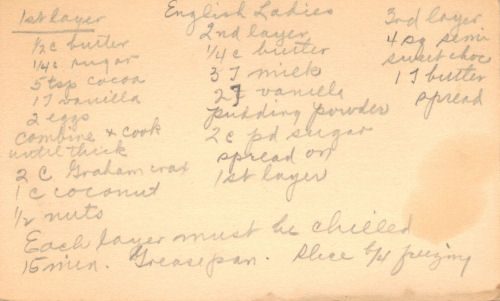 English Ladies
1st layer
1/2 c butter
1/4 c sugar
5 tsp cocoa
1 T vanilla
2 eggs
combine + cook
until thick
2 C Graham crax
1 c coconut
1/2 nuts
2nd layer
1/4 c butter
3 T milk
2 T vanilla
pudding powder
2 c pd sugar
spread on
1st layer
3rd layer
4 sq semi
sweet choc
1 T butter
spread
Each layer must be chilled
15 min. Grease pan. Slice b/4 freezing